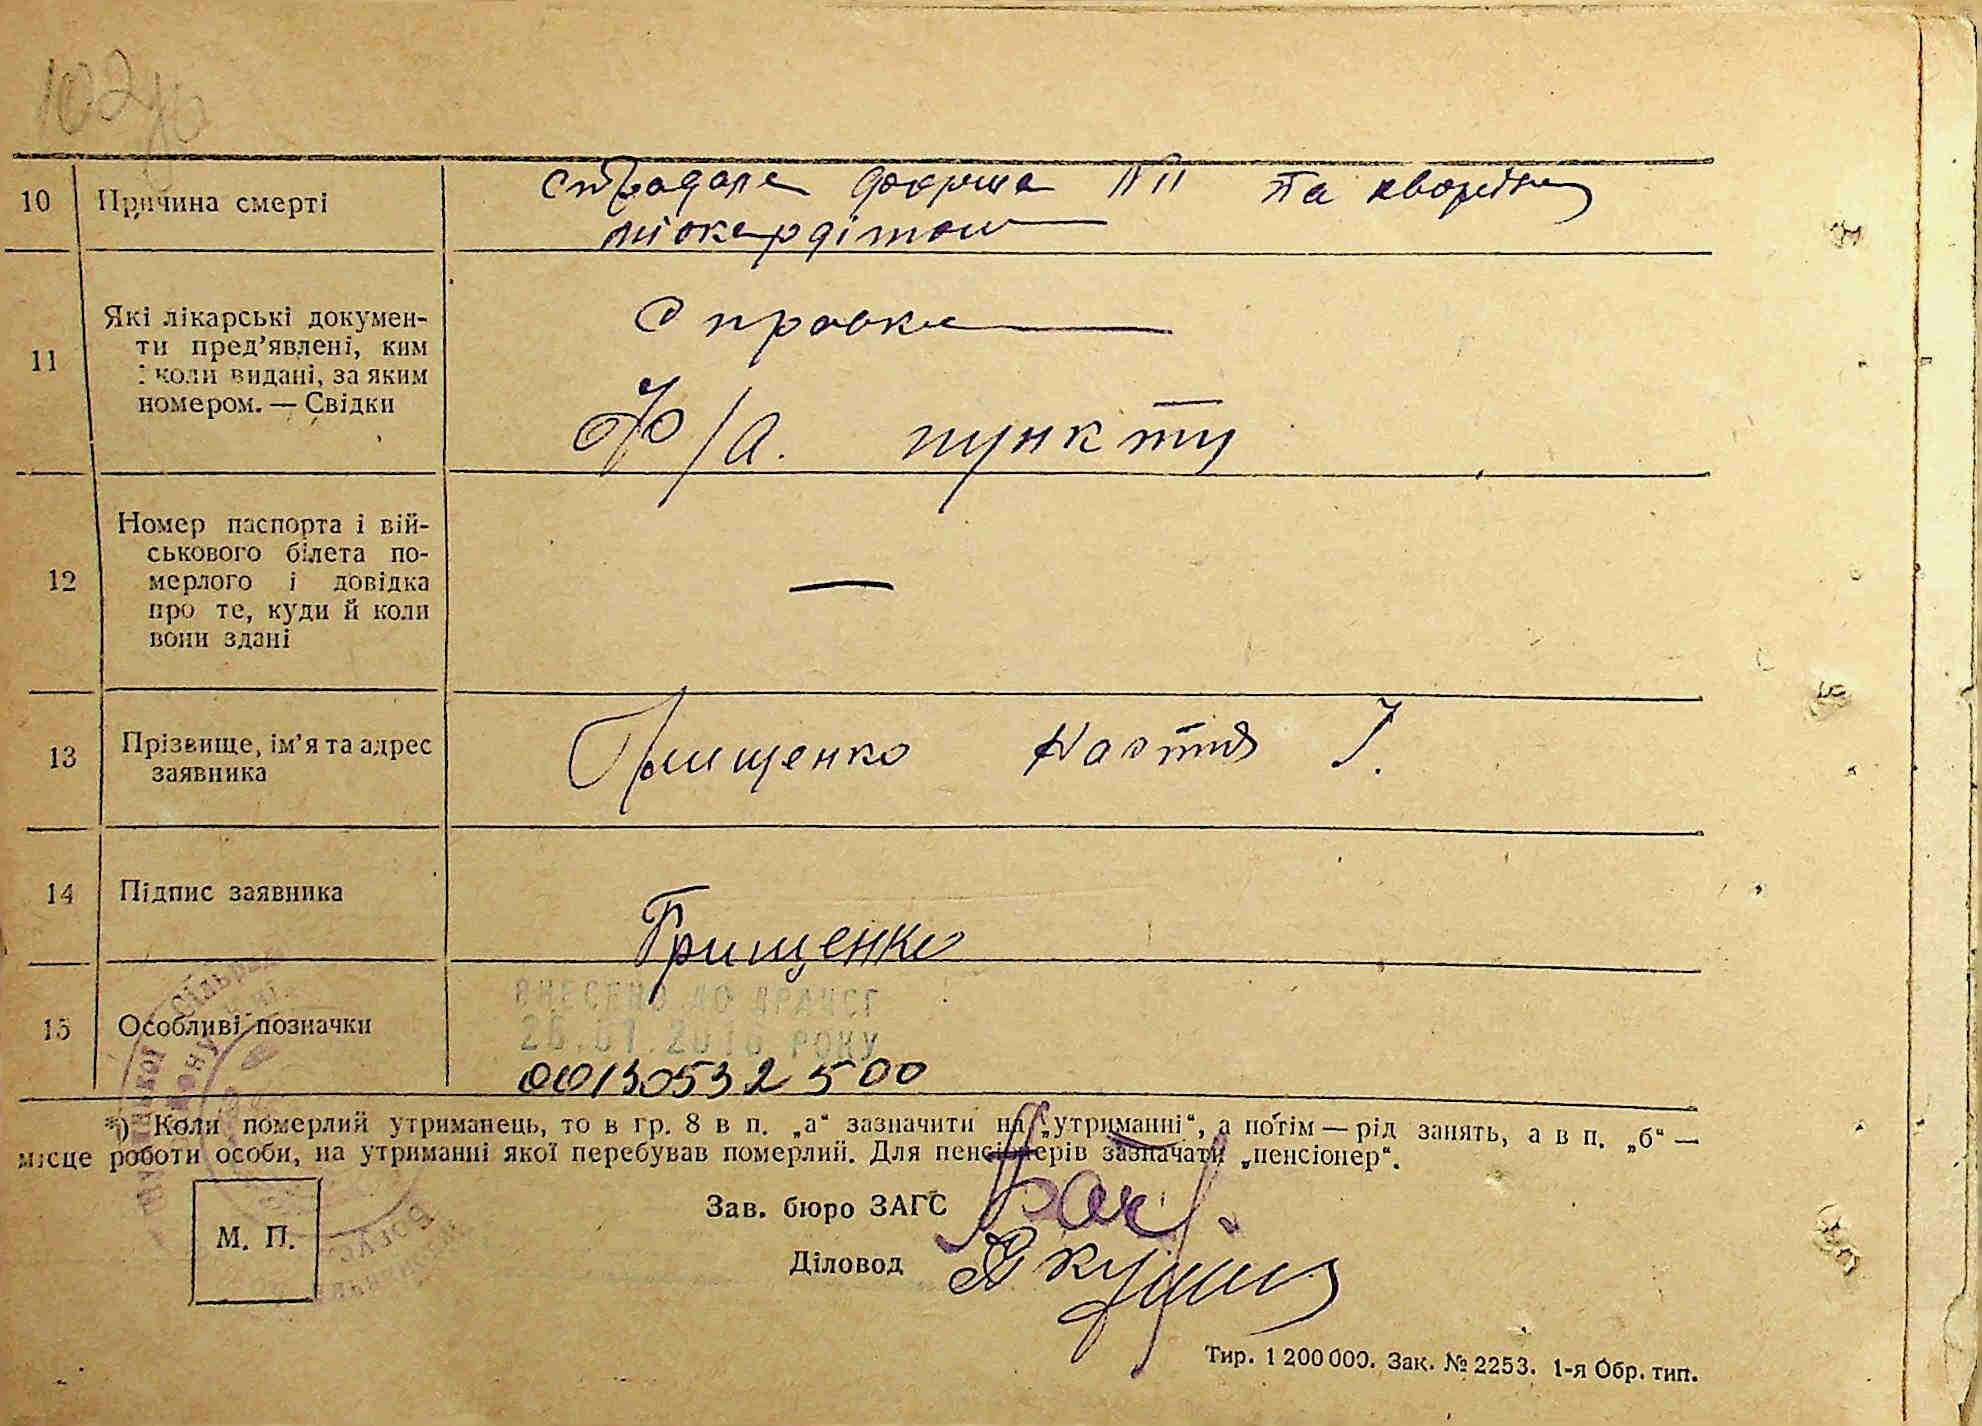 10 Причина смерті
та хворіла
міокардітом
11 Які лікарські докумен-
ти пред'явлені, ким
і коли видані, за яким
номером. — Свідки
Справка
Ф/А. пункту
12 Номер паспорта і вій-
ськового білета по-
мерлого і довідка
про те, куди й коли
вони здані
—
13 Прізвище, ім'я та адрес
заявника
Грищенко Настя І.
14 Підпис заявника
Грищенко
15 Особливі позначки
ВНЕСЕНО ДО ДРАЦСГ
РОКУ
00130532500
*) Коли померлий утриманець, то в гр. 8 в п. „а“ зазначити на „утриманні“, а потім — рід занять, а в п. „б“ —
місце роботи особи, на утриманні якої перебував померлий. Для пенсіонерів зазначати „пенсіонер“.
Зав. бюро ЗАГС
М. П.
Діловод
Тир. 1 200 000. Зак. № 2253. 1-я Обр. тип.